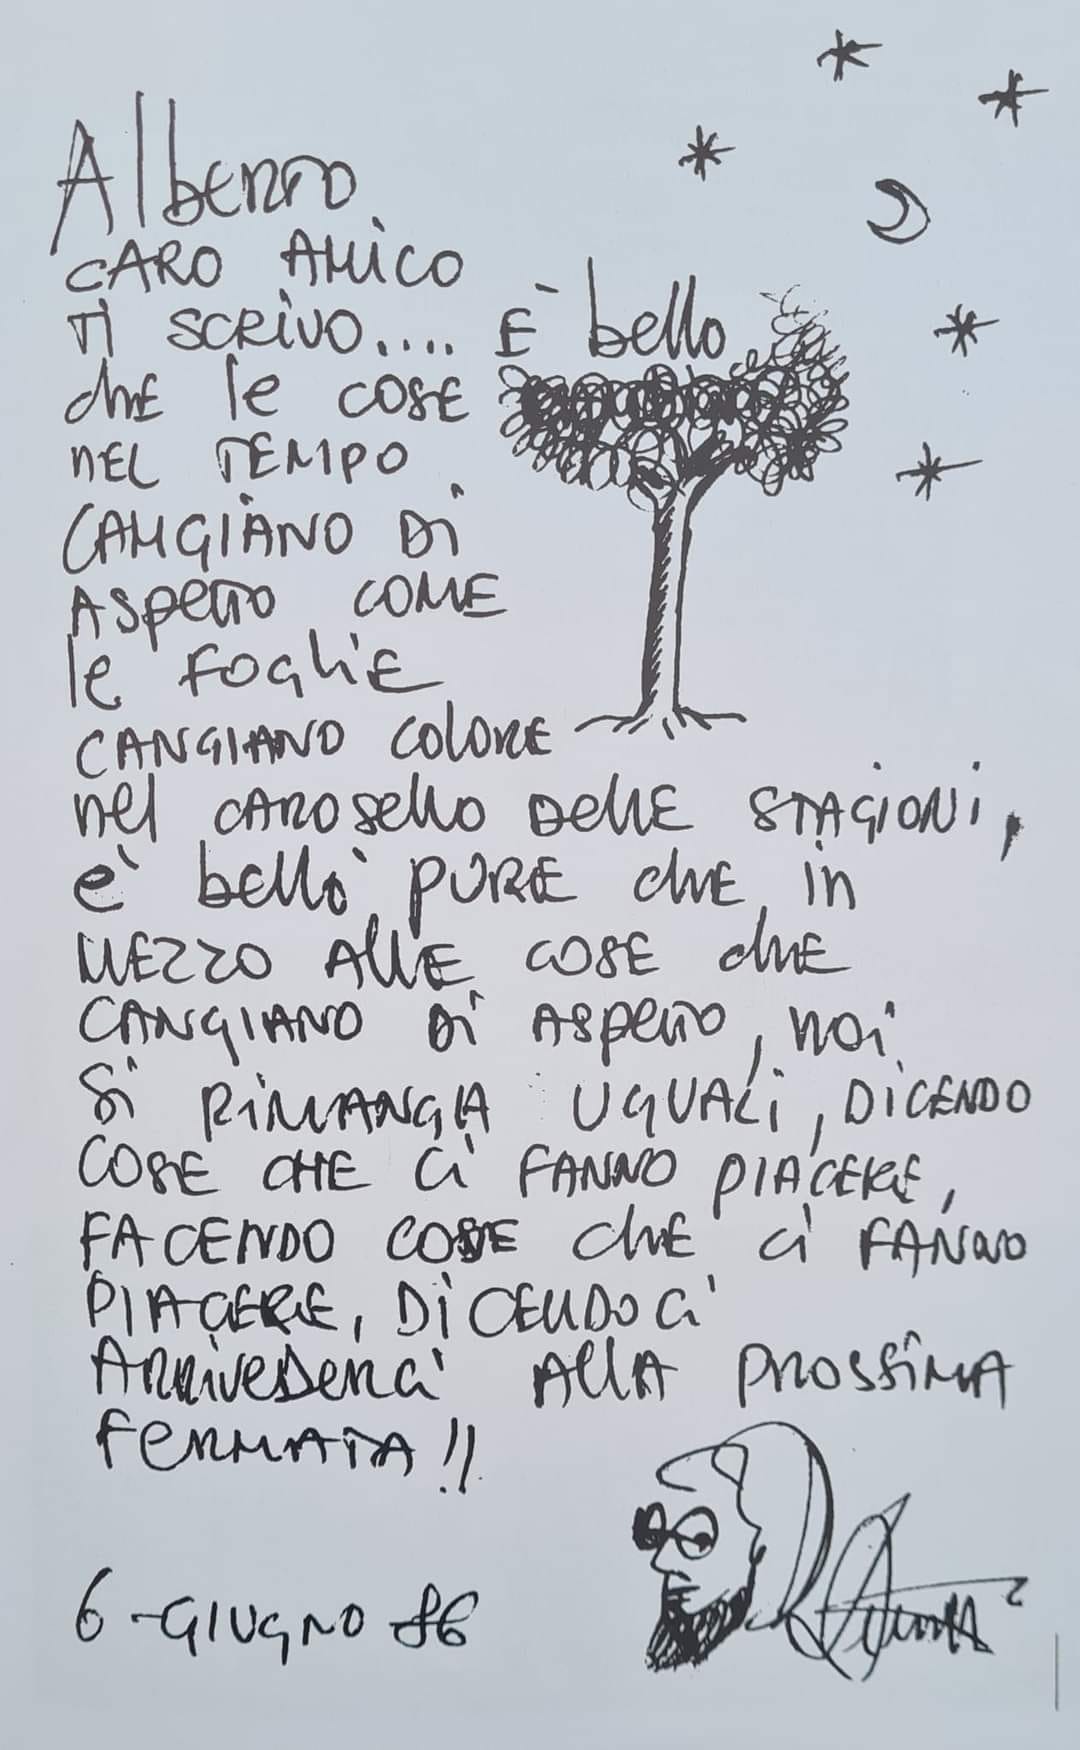 Alberto
CARO AMICO
TI SCRIVO.... E' bello
che le COSE
NEL TEMPO
CAMGIANO DI
ASPETTO COME
le FOGLIE
CANGIANO COLORE
nel CAROSELLO DELLE STAGIONI,
e' bello PURE che in
MEZZO ALLE COSE che
CANGIANO DI ASPETTO, noi
SI RIMANGIA UGUALI, DICENDO
COSE CHE CI FANNO PIACERE,
FACENDO COSE che CI FANNO
PIACERE, DICENDOCI
ARRIVEDERCI ALLA PROSSIMA
FERMATA!!
6-GIUGNO 86